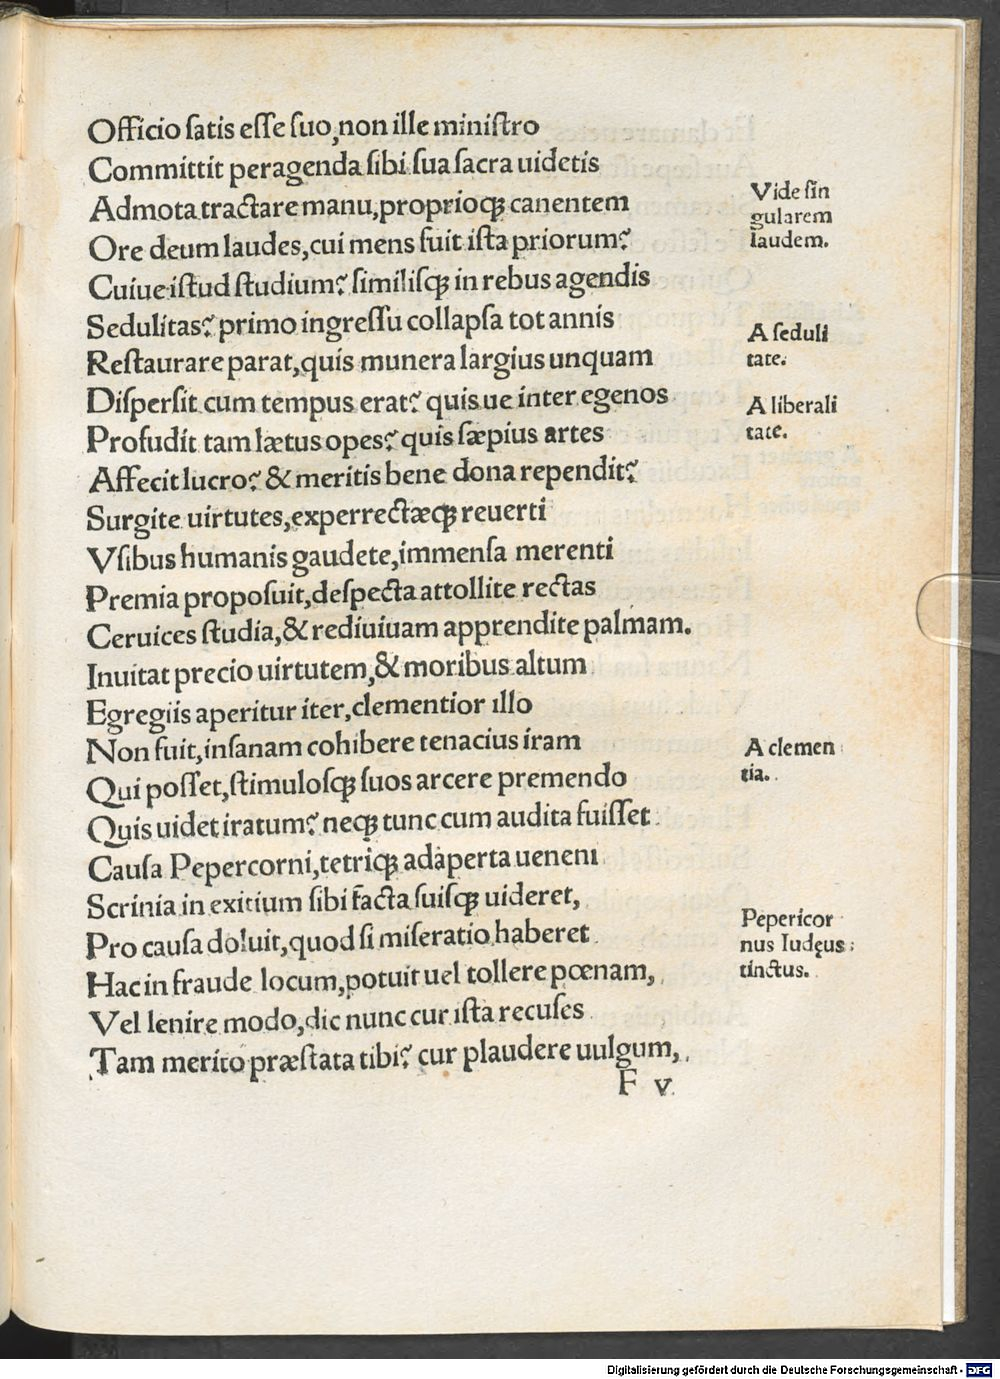 Officio ſatis eſſe ſuo,non ille miniſtro
Committit peragenda ſibi ſua ſacra uidetis
Admota tractare manu,proprioqꝫ canentem
Ore deum laudes,cui mens fuit iſta priorum?
Cuiue iſtud ſtudium? ſimiliſqꝫ in rebus agendis
Sedulitas? primo ingreſſu collapſa tot annis
Reſtaurare parat,quis munera largius unquam
Diſperſit cum tempus erat? quis ue inter egenos
Profudit tam lætus opes? quis ſæpius artes
Affecit lucro? & meritis bene dona rependit?
Surgite uirtutes,experrectæqꝫ reuerti
Vſibus humanis gaudete,immenſa merenti
Premia propoſuit,deſpecta attollite rectas
Ceruices ſtudia,& rediuiuam apprendite palmam.
Inuitat precio uirtutem,& moribus altum
Egregiis aperitur iter,clementior illo
Non fuit,inſanam cohibere tenacius iram
Qui poſſet,ſtimuloſqꝫ ſuos arcere premendo
Quis uidet iratum? neqꝫ tunc cum audita fuiſſet
Cauſa Pepercorni,tetriqꝫ adaperta ueneni
Scrinia in exitium ſibi facta ſuiſqꝫ uideret,
Pro cauſa doluit,quod ſi miſeratio haberet
Hac in fraude locum,potuit uel tollere pœnam,
Vel lenire modo,dic nunc cur iſta recuſes
Tam merito præſtata tibi? cur plaudere uulgum,
F v
Vide ſin
gularem
laudem.
A ſeduli
tate.
A liberali
tate.
A clemen
tia.
Pepericor
nus Iudęus
tinctus.
Digitalisierung gefördert durch die Deutsche Forschungsgemeinschaft - DFG